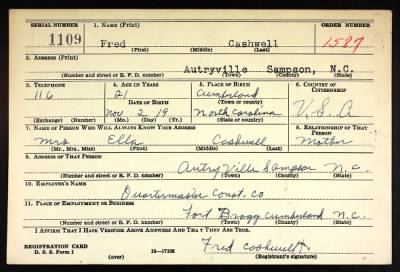 SERIAL NUMBER 1. NAME (Print) ORDER NUMBER
1109 Fred Cashwell 1587
(First) (Middle) (Last)
2. ADDRESS (Print)
Autryville Sampson, N.C.
(Number and street or R. F. D. number) (Town) (County) (State)
3. TELEPHONE 4. AGE IN YEARS 5. PLACE OF BIRTH 6. COUNTRY OF CITIZENSHIP
116 21 Cumberland
DATE OF BIRTH (Town or county)
Nov 2 19 North Carolina U.S.A
(Exchange) (Number) (Mo.) (Day) (Yr.) (State or country)
7. NAME OF PERSON WHO WILL ALWAYS KNOW YOUR ADDRESS 8. RELATIONSHIP OF THAT PERSON
Mrs Ella Cashwell Mother
(Mr., Mrs., Miss) (First) (Middle) (Last)
9. ADDRESS OF THAT PERSON
Autryville Sampson N.C.
(Number and street or R. F. D. number) (Town) (County) (State)
10. EMPLOYER'S NAME
Quartermaster Const. Co
11. PLACE OF EMPLOYMENT OR BUSINESS
Fort Bragg Cumberland N.C.
(Number and street or R. F. D. number) (Town) (County) (State)
I AFFIRM THAT I HAVE VERIFIED ABOVE ANSWERS AND THAT THEY ARE TRUE.
REGISTRATION CARD
D. S. S. Form 1 16—17105 Fred Cashwell
(over) (Registrant's signature)